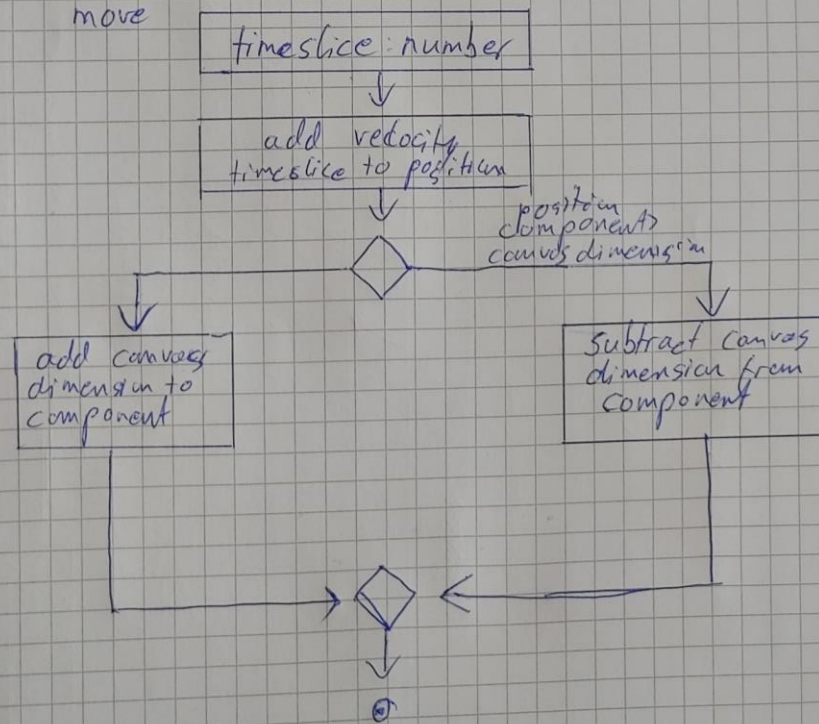 move
timeslice: number
add velocity
timeslice to position
position
component>
canvas dimension
add canvas
dimension to
component
subtract canvas
dimension from
component